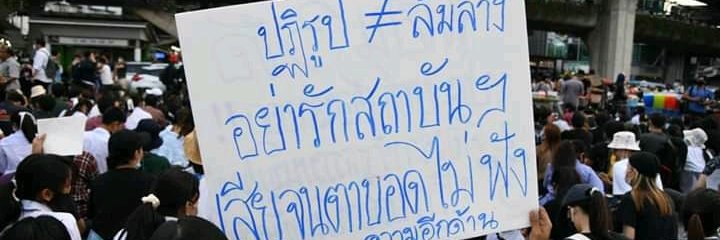 ปฏิรูป ≠ ล้มล้าง
อย่ารักสถาบันฯ
เสียจนตาบอดไม่ฟัง
ความอีกด้าน